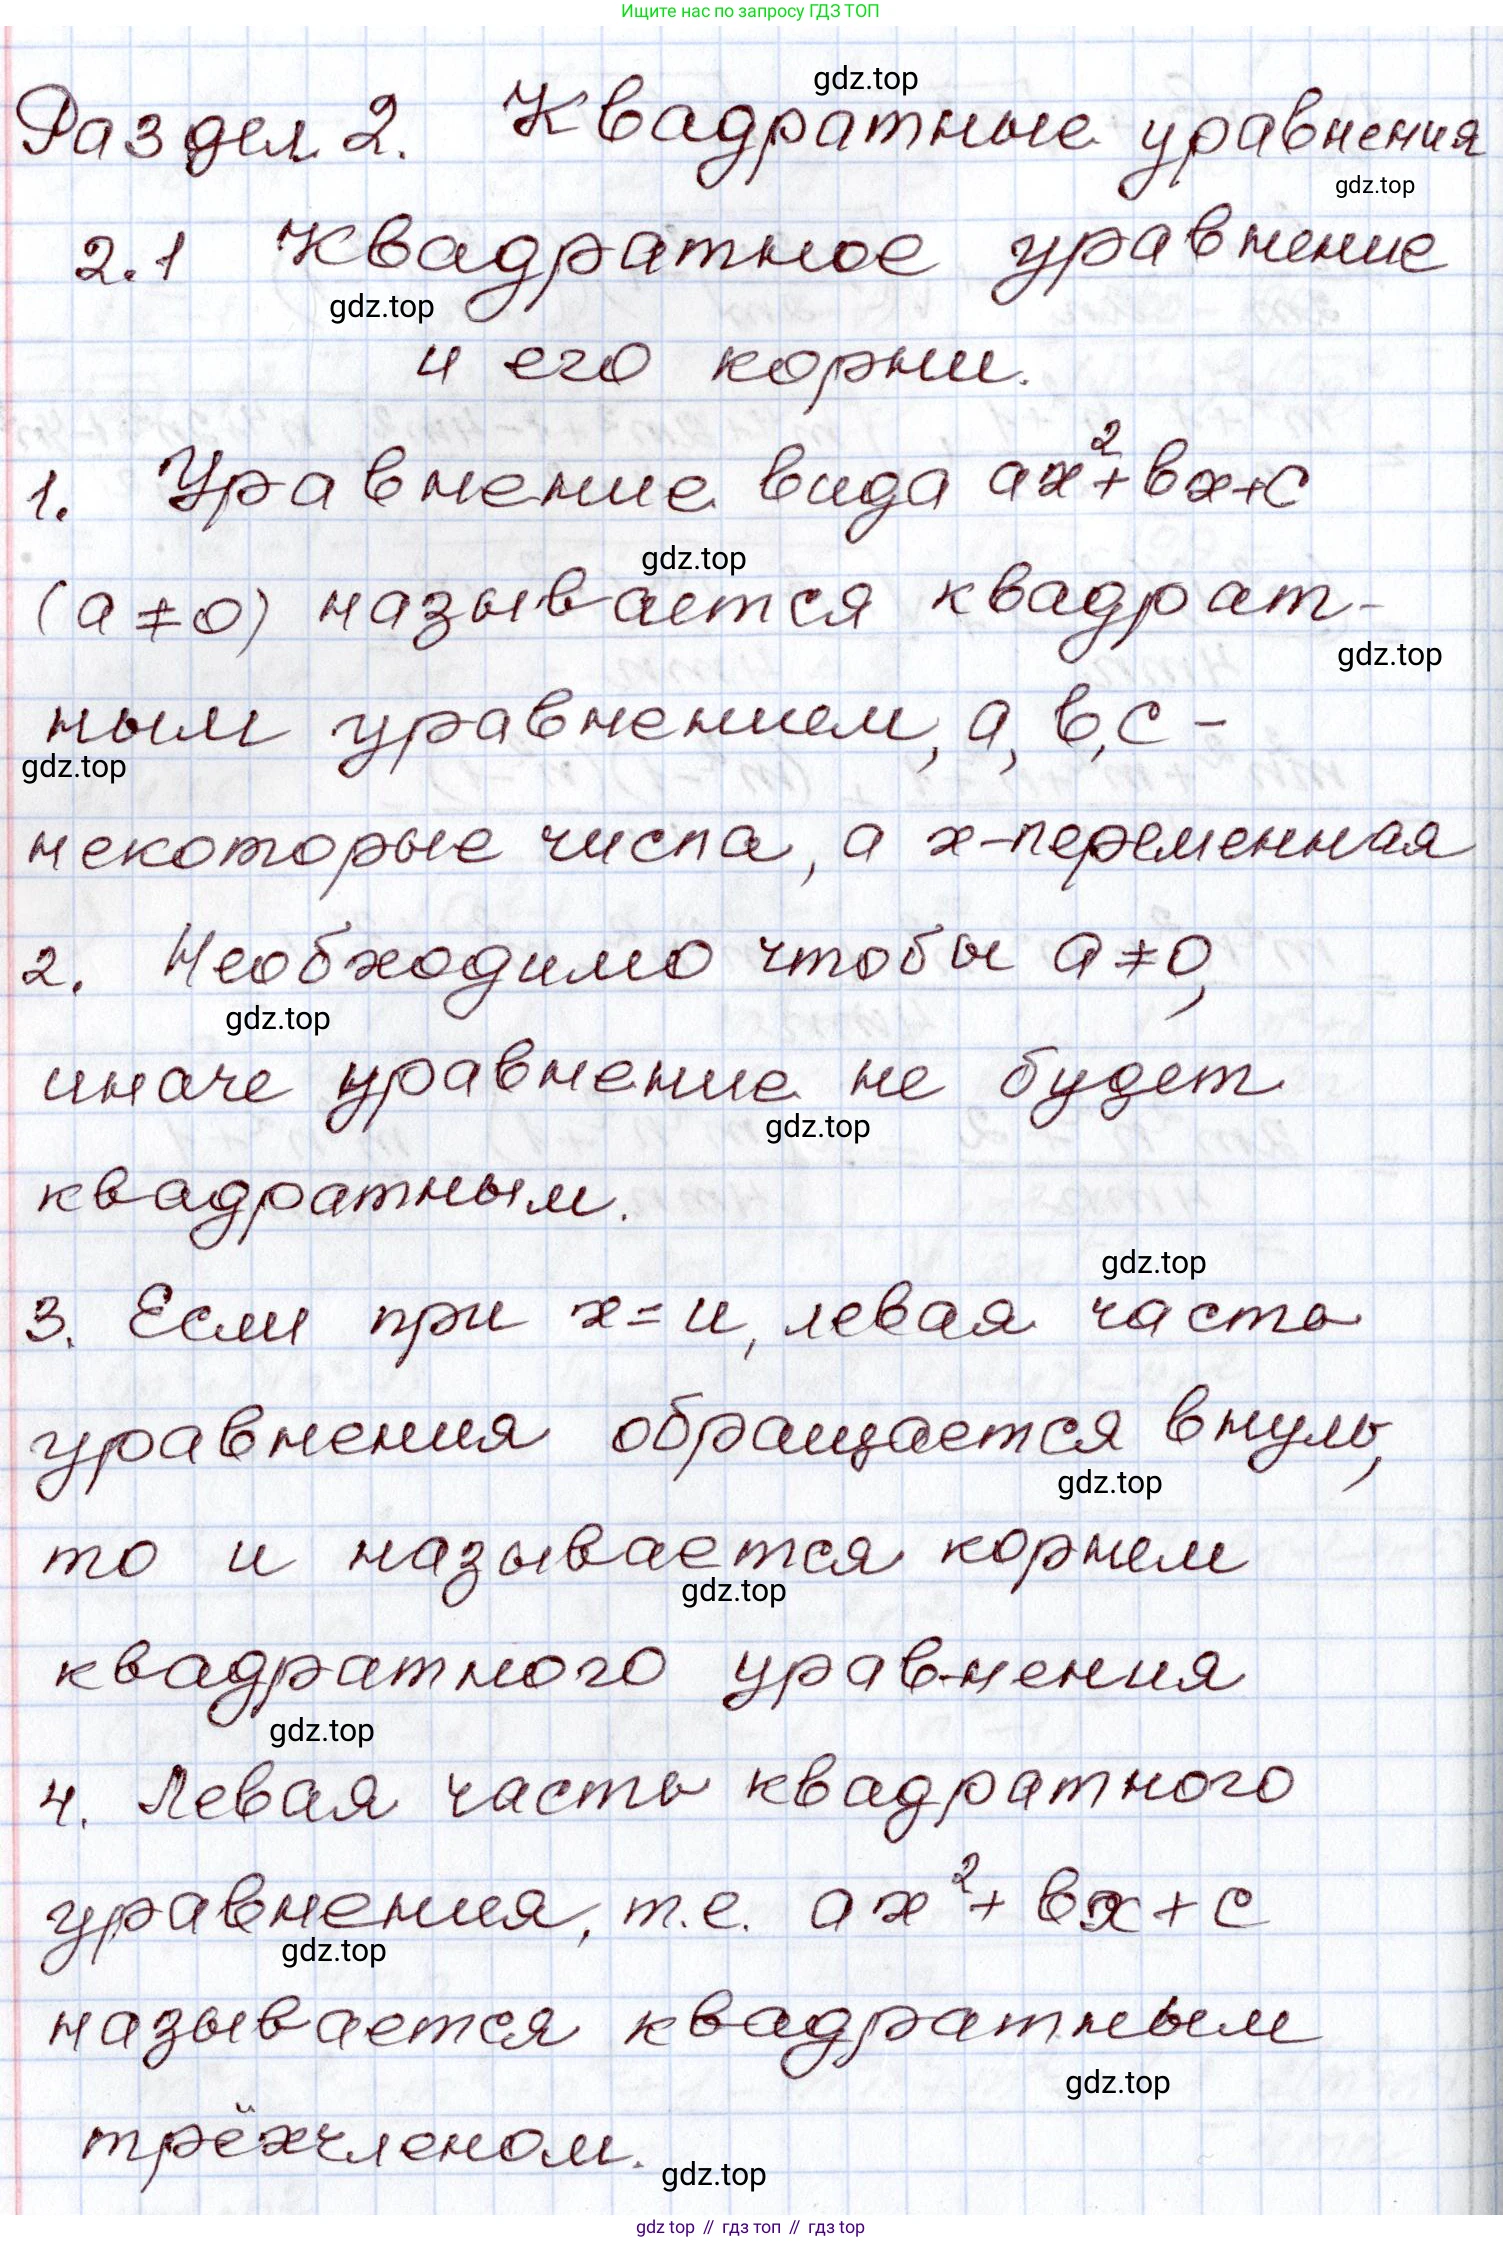 Ищите нас по запросу ГДЗ ТОП
gdz.top
Раздел 2. Квадратные уравнения
gdz.top
2.1 Квадратное уравнение
gdz.top
и его корни.
1. Уравнение вида ax²+bx+c
gdz.top
(a≠0) называется квадрат-
gdz.top
ным уравнением, a, b, c -
gdz.top
некоторые числа, а x-переменная
2. Необходимо чтобы a≠0,
gdz.top
иначе уравнение не будет
gdz.top
квадратным.
gdz.top
3. Если при x=и, левая часть
уравнения обращается в нуль,
gdz.top
то и называется корнем
gdz.top
квадратного уравнения
gdz.top
4. Левая часть квадратного
уравнения, т.е. ax²+bx+c
gdz.top
называется квадратным
gdz.top
трёхчленом.
gdz.top
gdz top // гдз топ // гдз top